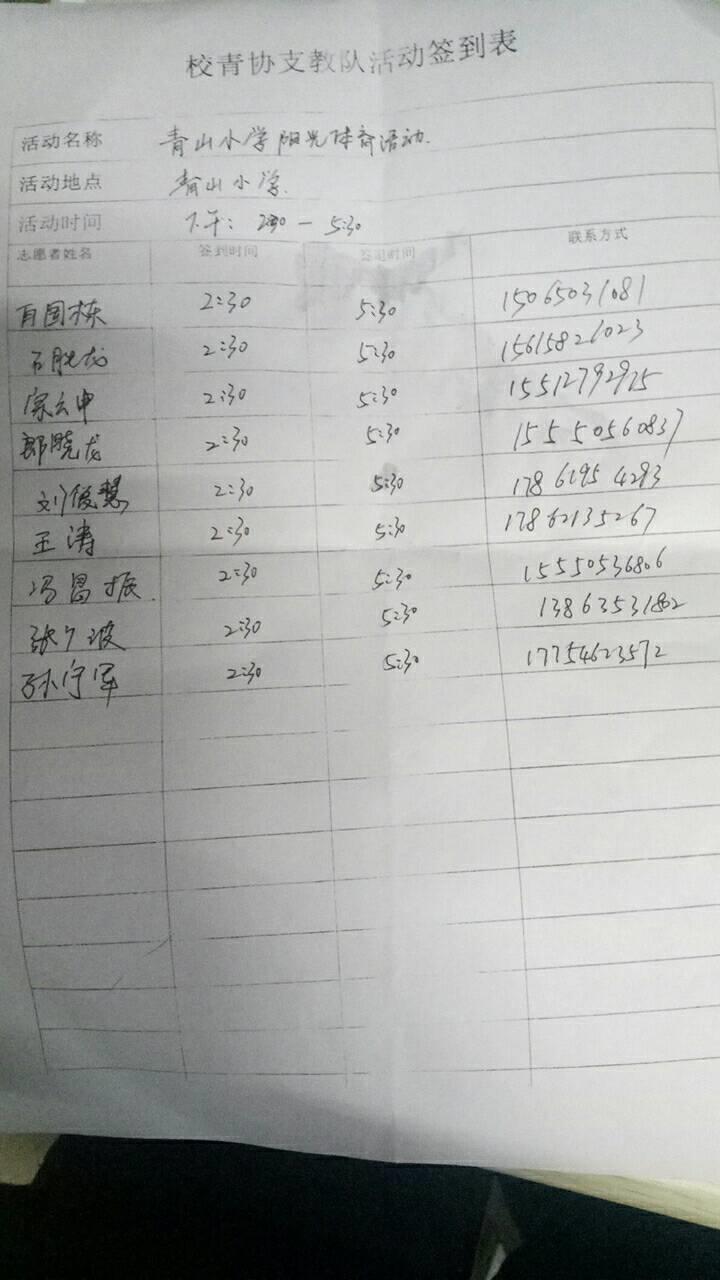 校青协支教队活动签到表
活动名称 青山小学阳光体育活动.
活动地点 青山小学.
活动时间 下午: 2:30 — 5:30
志愿者姓名 签到时间 签退时间 联系方式
肖国栋 2:30 5:30 15065031081
石晓龙 2:30 5:30 15615821023
宗云申 2:30 5:30 15512792975
郎晓龙 2:30 5:30 15550560837
刘俊慧 2:30 5:30 17861954293
王涛 2:30 5:30 17862135267
冯昌振. 2:30 5:30 15550536806
张广波 2:30 5:30 13863531862
孙守军 2:30 5:30 17754623572